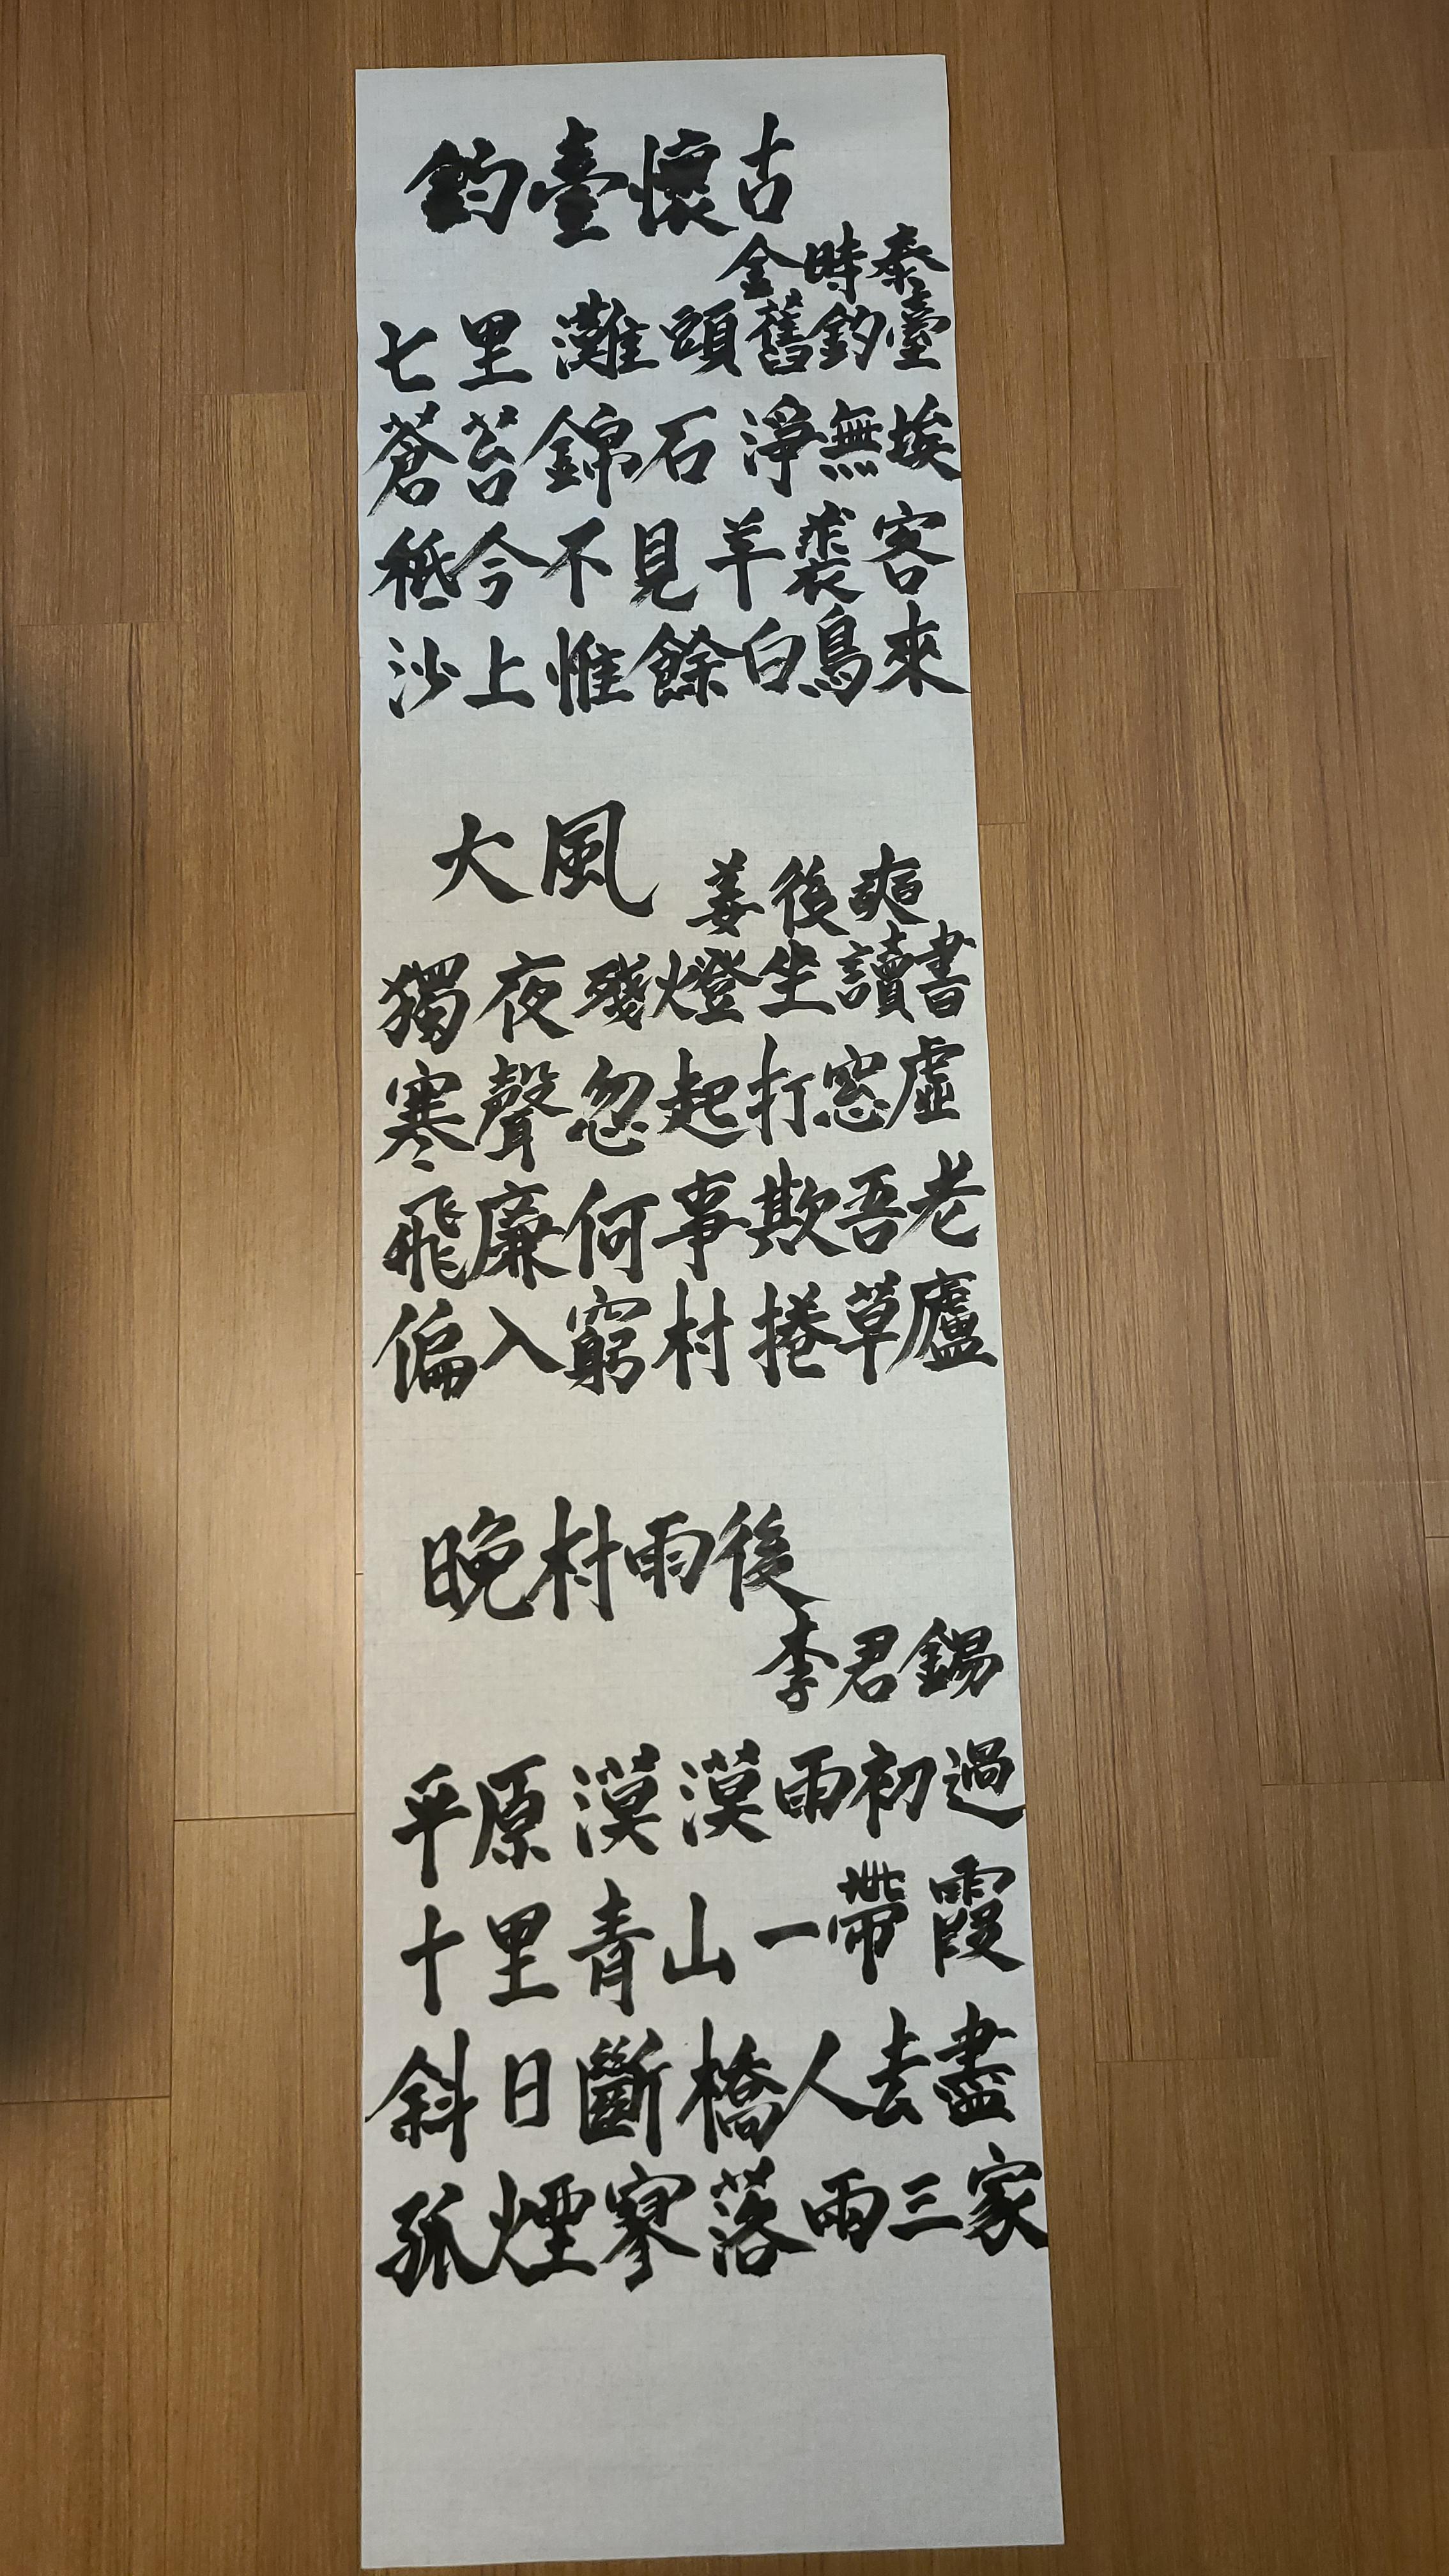 釣臺懷古
金時泰
七里灘頭舊釣臺
蒼苔錦石淨無埃
秪今不見羊裘客
沙上惟餘白鳥來
大風
姜後奭
獨夜殘燈坐讀書
寒聲忽起打窓虛
飛廉何事欺吾老
偏入窮村捲草廬
晚村雨後
李君錫
平原漠漠雨初過
十里青山一帶霞
斜日斷橋人去盡
孤煙寥落兩三家